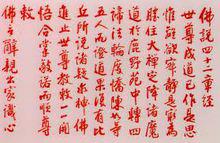 佛說四十二章經
世尊成道已作是思
惟離欲寂靜是最為
勝住大禪定降諸魔
道於鹿野苑中轉四
諦法輪度憍陳如等
五人而證道果復有比
丘所說諸疑求佛
進止世尊教敕一一開
悟合掌敬諾而順尊
敕
佛言辭親出家識心